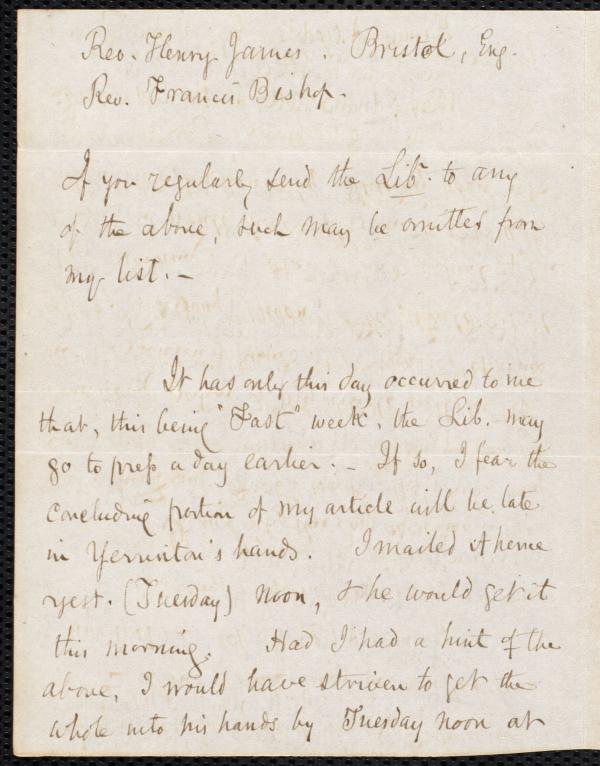 Rev. Henry James. Bristol, Eng.
Rev. Francis Bishop.
If you regularly send the Libr. to any
of the above, such may be omitted from
my list. —
It has only this day occurred to me
that, this being "Fast" week, the Lib. may
go to press a day earlier. – If so, I fear the
concluding portion of my article will be late
in Yerrinton's hands. I mailed it here
yest. (Tuesday) noon, & he would get it
this morning. Had I had a hint of the
above, I would have striven to get the
whole into his hands by Tuesday noon at